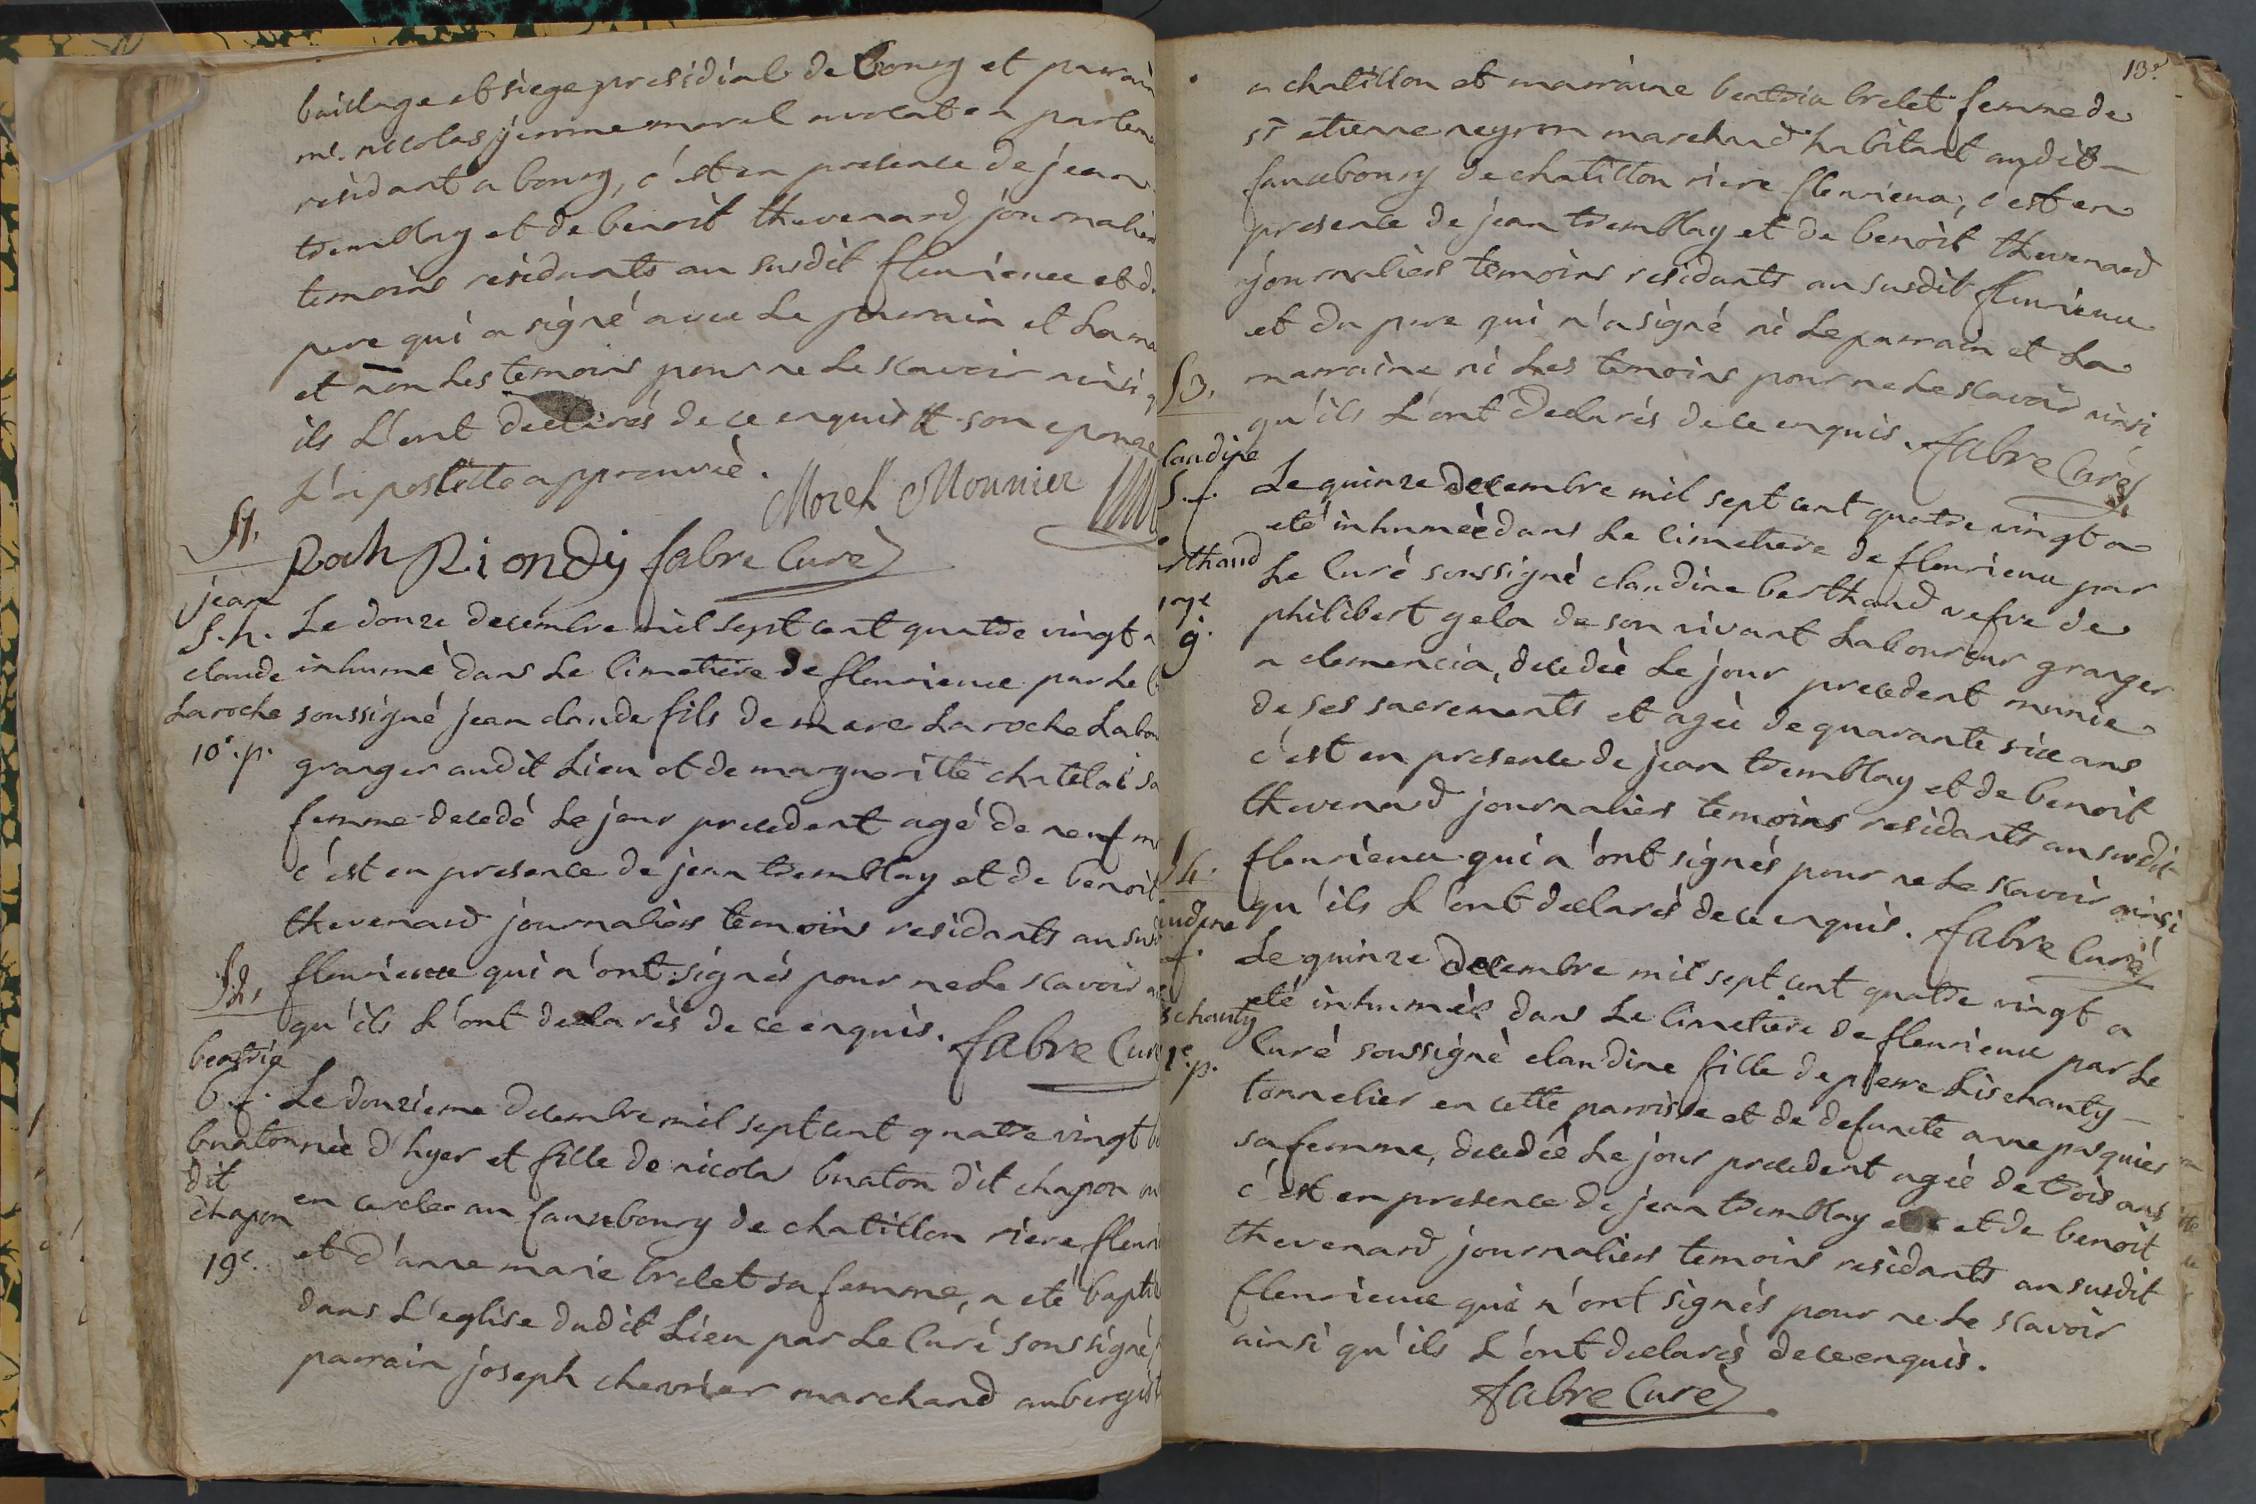 baillage et siege presidial de bourg et parrain
mr. nicolas jerome morel avocat en parleme
residant a bourg, c'est en presence de jean
tremblay et de benoit thevenard journalier
temoins residants au susdit fleurieux et d.
pere qui a signé avec le parrain et la ma
et non les temoins pour ne le scavoir ainsi q
ils l'ont declarés de ce enquis # son epouse
l'apostille approuvée.
Morel Mounier
Roch Riondy fabre Curé
51.
jean
S. h.
claude
Laroche
10e. p.
Le douze decembre mil sept cent quatre vingt a
inhumé dans le cimetiere de fleurieux par le C
soussigné jean claude fils de marc Laroche Labou
granger audit Lieu et de margueritte chatelai sa
femme decedé le jour precedent agé de neuf mo
c'est en presence de jean tremblay et de benoit
thevenard journaliers temoins residants au sus
fleurieux qui n'ont signés pour ne le scavoir a
qu'ils l'ont declarés de ce enquis. fabre Curé
52.
beatrix
b. f.
buaton
dit
chapon
19e.
Le douzieme decembre mil sept cent quatre vingt b
née d'hyer et fille de nicolas buaton dit chapon ou
en cercles au fauxbourg de chatillon riere fleuri
et d'anne marie brelet sa femme, a eté bapti
dans L'eglise dudit Lieu par le Curé soussigné
parrain joseph chevrier marchand aubergist
13e
a chatillon et marraine beatrix brelet femme de
sr etienne negron marchand habitant audit
fauxbourg de chatillon riere fleurieux, c'est en
presence de jean tremblay et de benoit thevenard
journaliers temoins residants au susdit fleurieux
et du pere qui n'a signé ni le parrain et la
marraine ni les temoins pour ne le scavoir ainsi
qu'ils l'ont declarés de ce enquis. fabre Curé
53.
laudine
S. f.
erthaud
g.
Le quinze decembre mil sept cent quatre vingt a
eté inhumée dans le cimetiere de fleurieux par
le Curé soussigné claudine berthaud vefve de
philibert gela de son vivant Laboureur granger
a clemencia, decedée le jour precedent munie
de ses sacrements et agée de quarante six ans
c'est en presence de jean tremblay et de benoit
thevenard journaliers temoins residants au susdit
fleurieux qui n'ont signés pour ne le scavoir ainsi
qu'ils l'ont declarés de ce enquis. fabre Curé
54.
audine
f.
schanty
1e. p.
Le quinze decembre mil sept cent quatre vingt a
eté inhumée dans le cimetiere de fleurieux par le
Curé soussigné claudine fille de pierre Lischanty
tonnelier en cette paroisse et de defuncte anne pasquier
sa femme, decedée le jour precedent agée de trois ans
c'est en presence de jean tremblay et de benoit
thevenard journaliers temoins residants au susdit
fleurieux qui n'ont signés pour ne le scavoir
ainsi qu'ils l'ont declarés de ce enquis.
fabre Curé